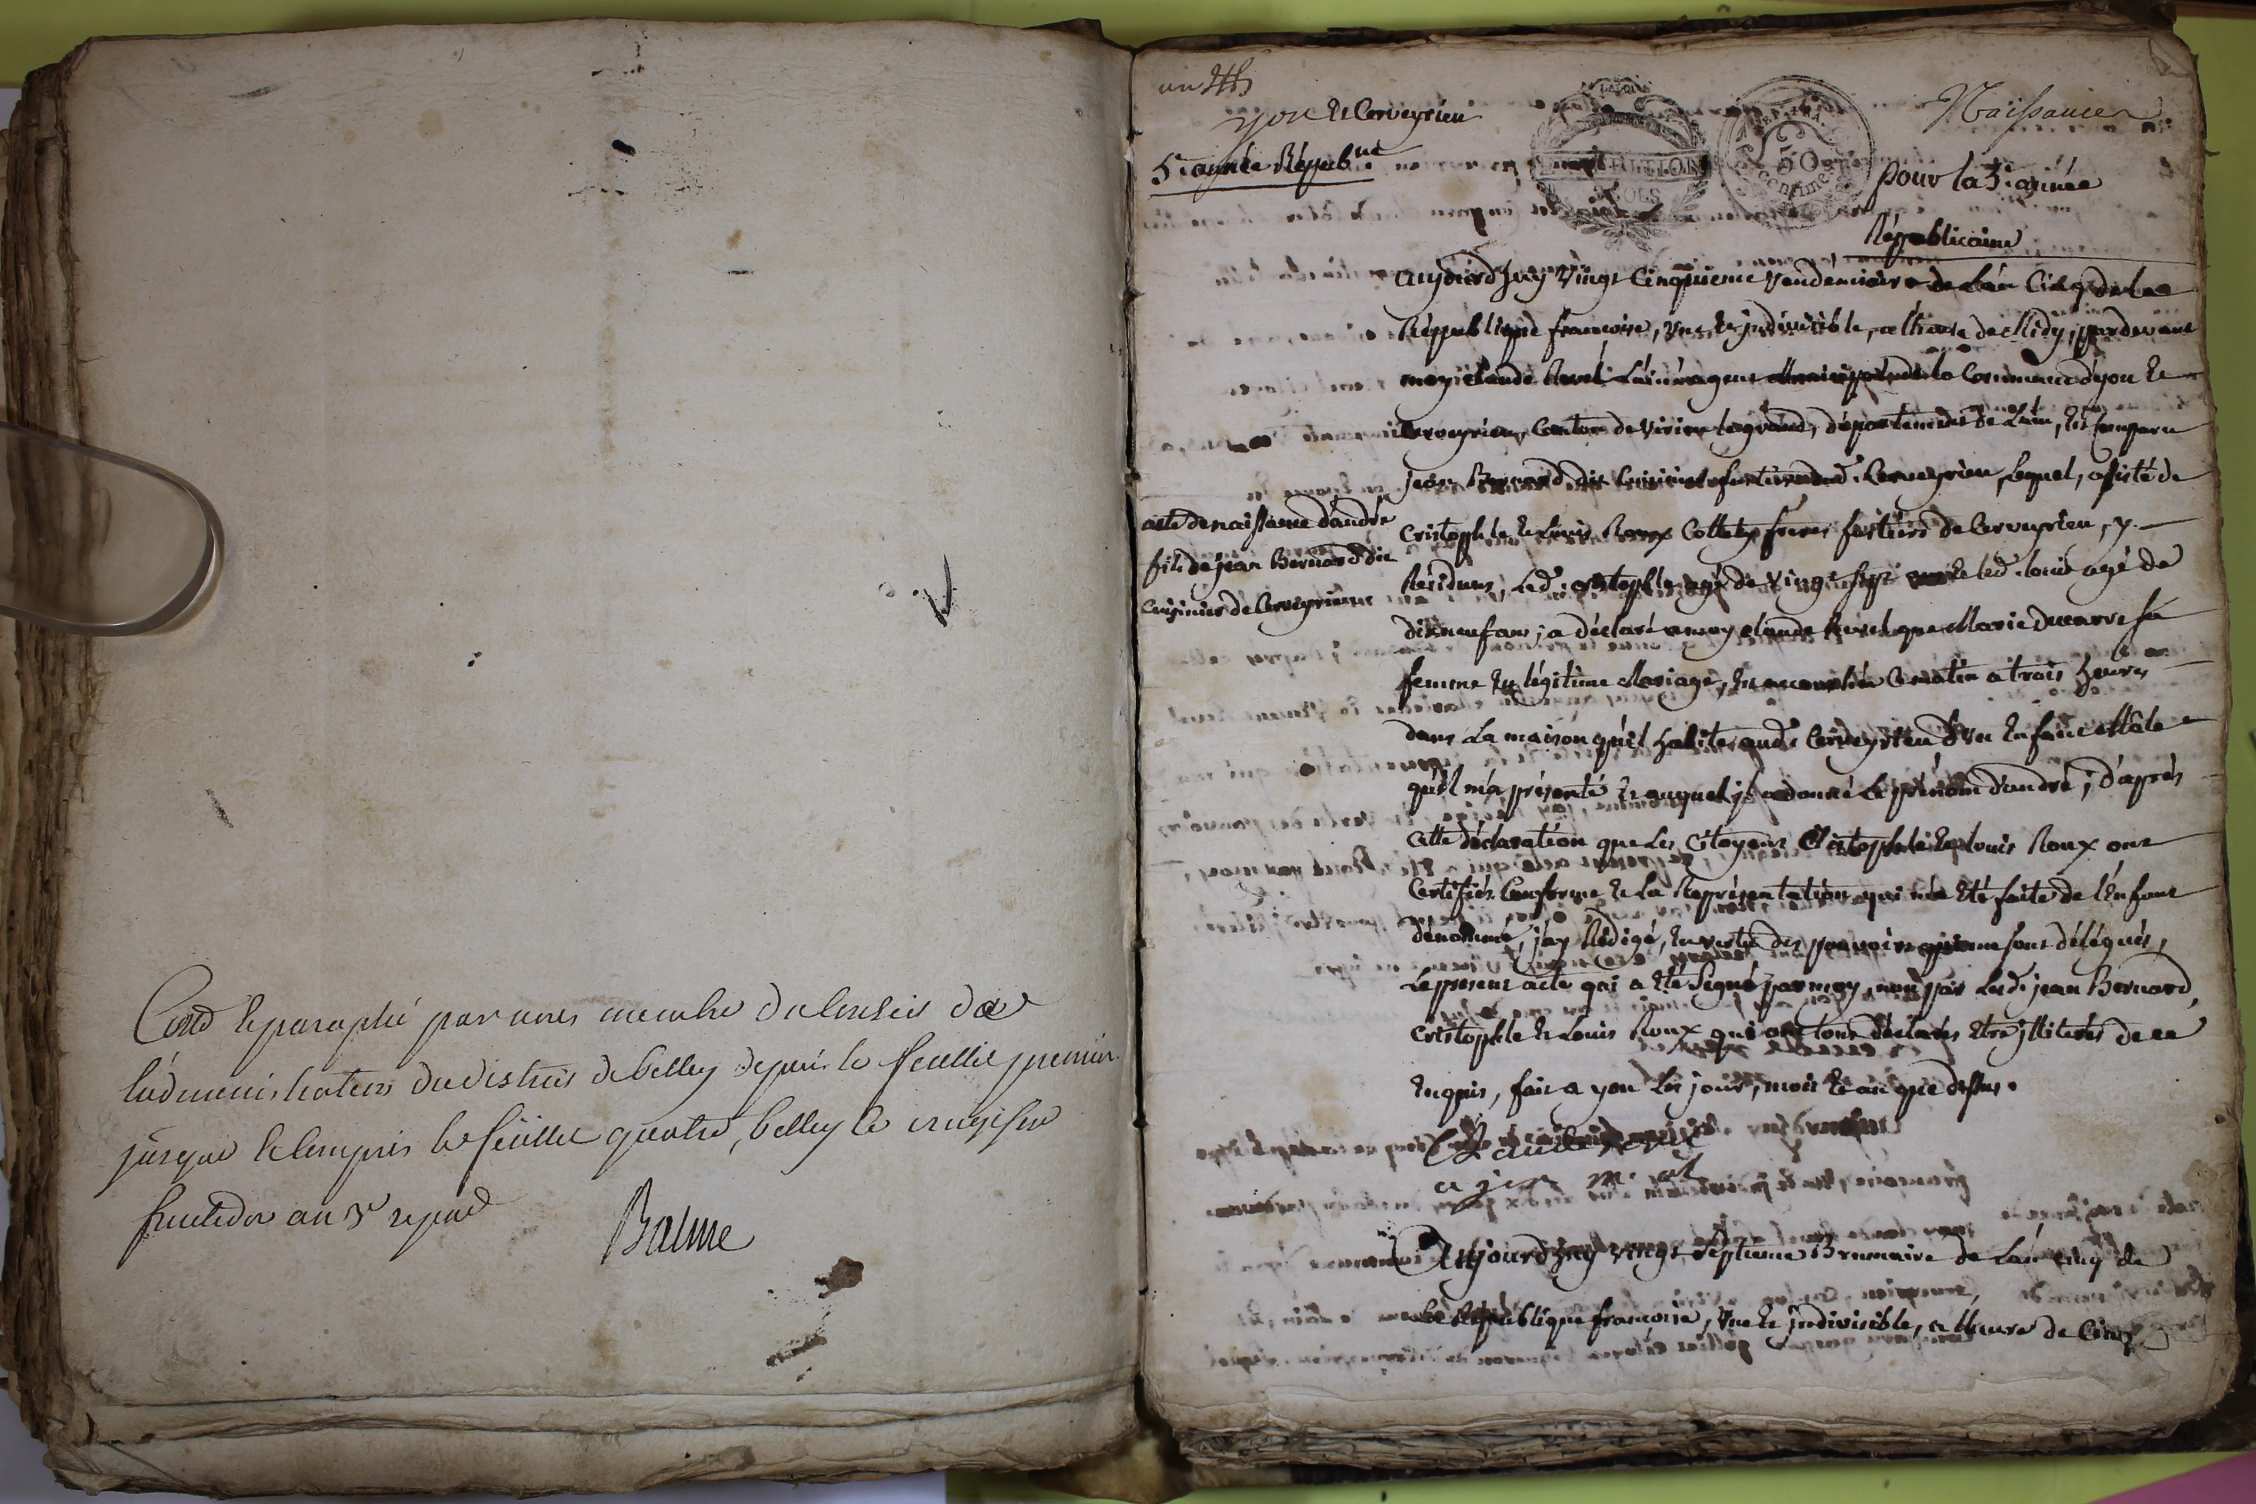 Cotté et paraphé par nous membre du Conseil de
ladministration du district de belley depuis le feuillet premier
jusque et compris le feuillet quatre, belley le
fructidor an 3e repub
Balme
un
yon et Cerveyrieu
5e année Répubne
Naissances
50
centime
pour la 5e année
Républicaine
aujourd'huy vingt Cinquieme vendemiaire de L'an Cinq de la
République françoise, une et jndivisible, a l'heure de Midy, pardevant
moy Claude Revel L'ainé agent de la Commune d'yon et
Cerveyrieu, Canton de Virieu le grand, département de L'ain, est Comparu
jean Bernard dit Cuisinier de Cerveyrieu, Lequel, assisté de
acte de naissance d'andré
fils de jean Bernard dit
Cuisinier de Cerveyrieu
Cristophle et Louis Roux Collet freres de Cerveyrieu, y
Résidens, Led. cristophle agé de vingt sept et led. louis agé de
dixneuf ans, a déclaré a moy claude Revel que Marie ducarre sa
femme en légitime Mariage, est accouchée Ce matin a trois heures
dans La maison qu'il habite aud. Cerveyrieu d'un Enfant Mâle
qu'il m'a présenté et auquel jl a donné Le prénom d'andré; d'après
cette déclaration que Les Citoyens Cristophle et louis Roux ont
Certifiés Conforme et La Représentation qui m'a été faite de l'Enfant
dénommé, j'ay Rédigé, en vertu des pouvoirs qui me sont délégués,
Le present acte qui a été Signé par moy, non par Led. jean Bernard,
Cristophle et Louis Roux qui ont tous déclarés être jllitérés de ce
Enquis, fait a yon Les jour, mois et an que dessus.
Claude Revel
agen
Aujourd'huy vingt septieme Brumaire de L'an cinq de
la République françoise, une et jndivisible, a lheure de Cinq